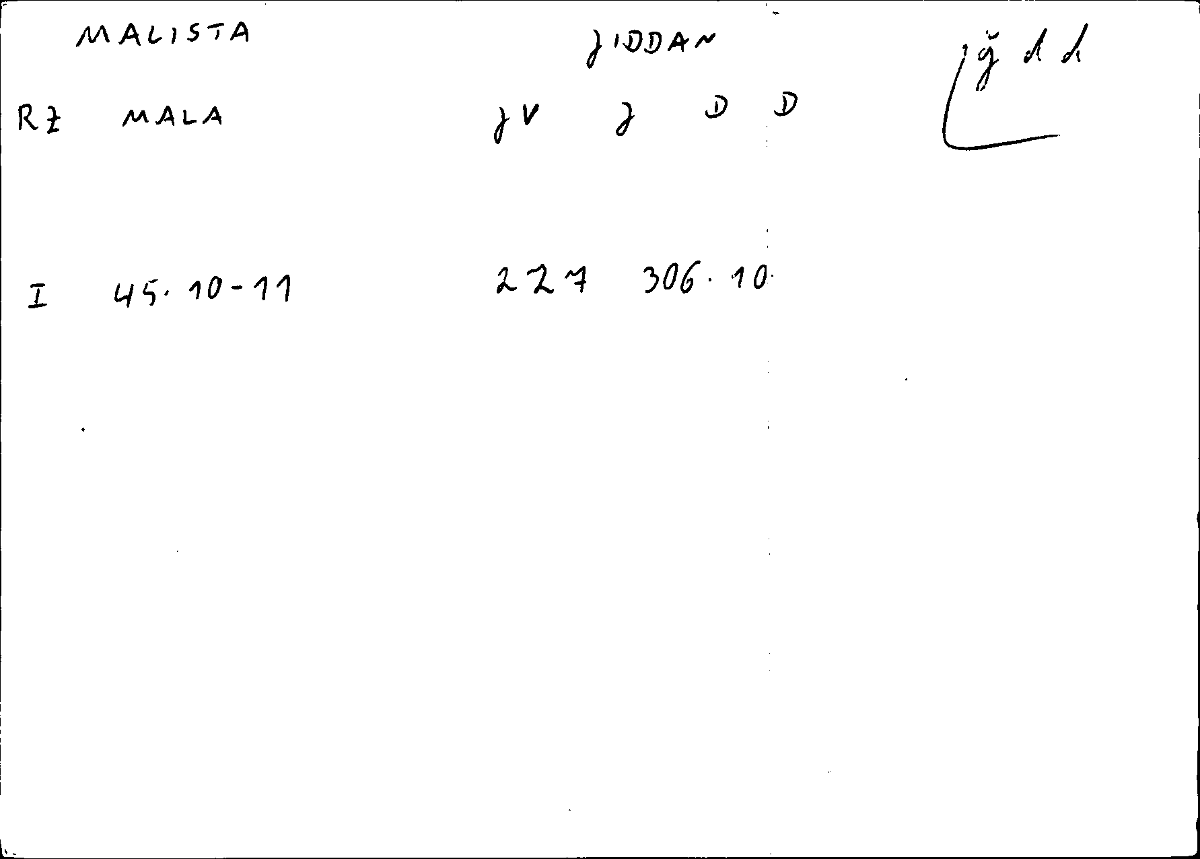 MALISTA JIDDAN ǧ d d
RZ MALA JV J D D
I 45. 10-11 227 306. 10